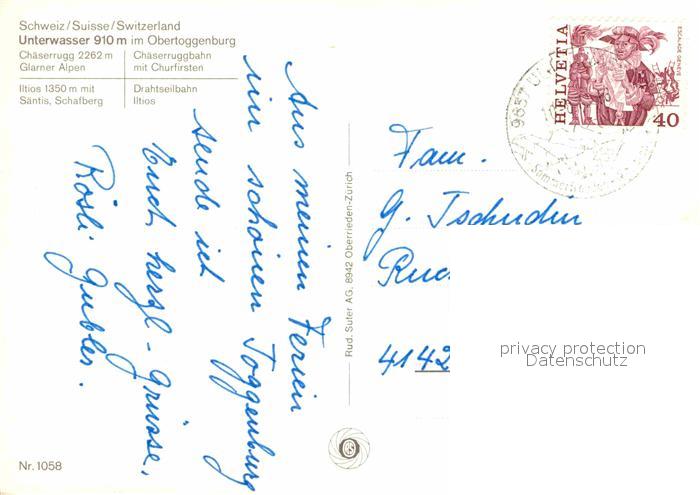 Schweiz/Suisse/Switzerland
Unterwasser 910 m im Obertoggenburg
Chäserrugg 2262 m
Glarner Alpen
Chäserruggbahn
mit Churfirsten
Iltios 1350 m mit
Säntis, Schafberg
Drahtseilbahn
Iltios
Aus meinen Ferien
im schönen Toggenburg
sende ich
Euch herzl. Grüsse.
Rösli Gubler.
Nr. 1058
Rud. Suter AG, 8942 Oberrieden-Zürich
HELVETIA
ESCALADE GENÈVE
40
9657
Fam.
G. Tschudin
4142
privacy protection
Datenschutz